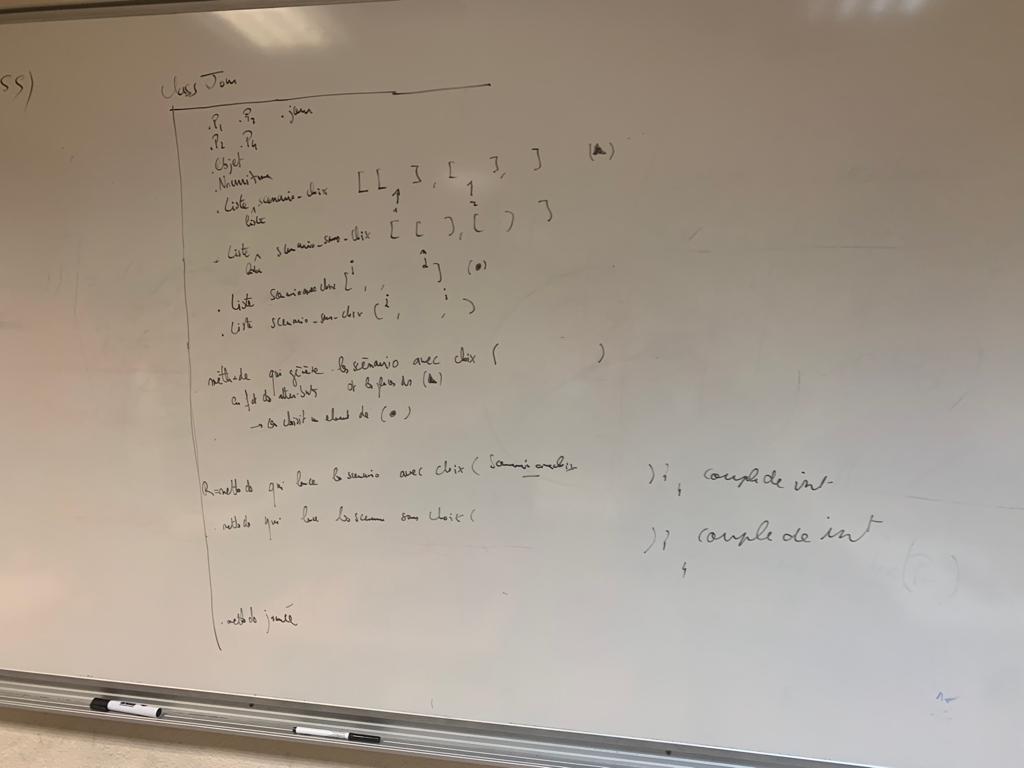 ss)
class Jour
.P1 .P3 .jour
.P2 .P4
.Objet
.Nourriture
. Liste scenario_choix [ [ ] , [ ] , ] (▲)
liste 1 2
. Liste scenario_sans_choix [ [ ] , [ ] ]
. Liste scenario avec choix [ i , , 2 ] (●)
. Liste scenario_sans_choix ( i , i , )
méthode qui génère les scénario avec choix ( )
et les (▲)
→ on choisit un element de (●)
methode qui lance les scenario avec choix ( ) ; couple de int
. methode qui lance les scenario sans choix ( ) ; couple de int
. methode journée